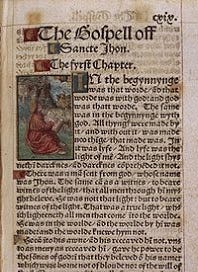 cxix.
The Gospell off
Sancte Jhon.
The fyrst Chapter.
In the begynnynge
was that worde / ād that
worde was with god: and god
was thatt worde. The same
was in the begynnynge wyth
god. All thyngꝭ were made by
it / and with out it / was made
noo thīge / that made was. In it
was lyfe / And lyfe was the
light of mē / And the light shyneth
in darcknes / ād darcknes cōprehēded it not.
There was a mā sent from god / whose name
was Jhon. The same cā as a witnes / to beare
witnes of the light / that all men through him myght
beleve. He was not that light: but to beare
witnes of the light. That was a true light / which
lighteneth all men that come īto the worlde.
He was in the worlde / ād the worlde by hī was
made: and the worlde knewe hym not.
He cā īto his awne / ād his receaved hī not. vnto
as meny as receaved hī / gave he power to be
the sōnes of god: ī thatt they beleved ī his name:
which were borne not of bloude nor of the will of